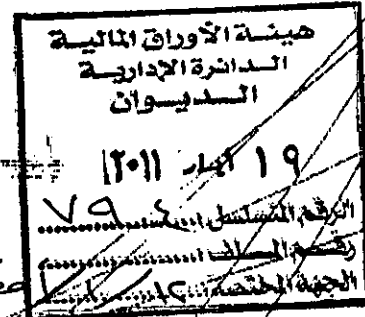 هيئة الأوراق المالية
الدائرة الإدارية
الديوان
١٩ أيار ٢٠١١
الرقم المتسلسل
رقم الملف
الجهة المختصة